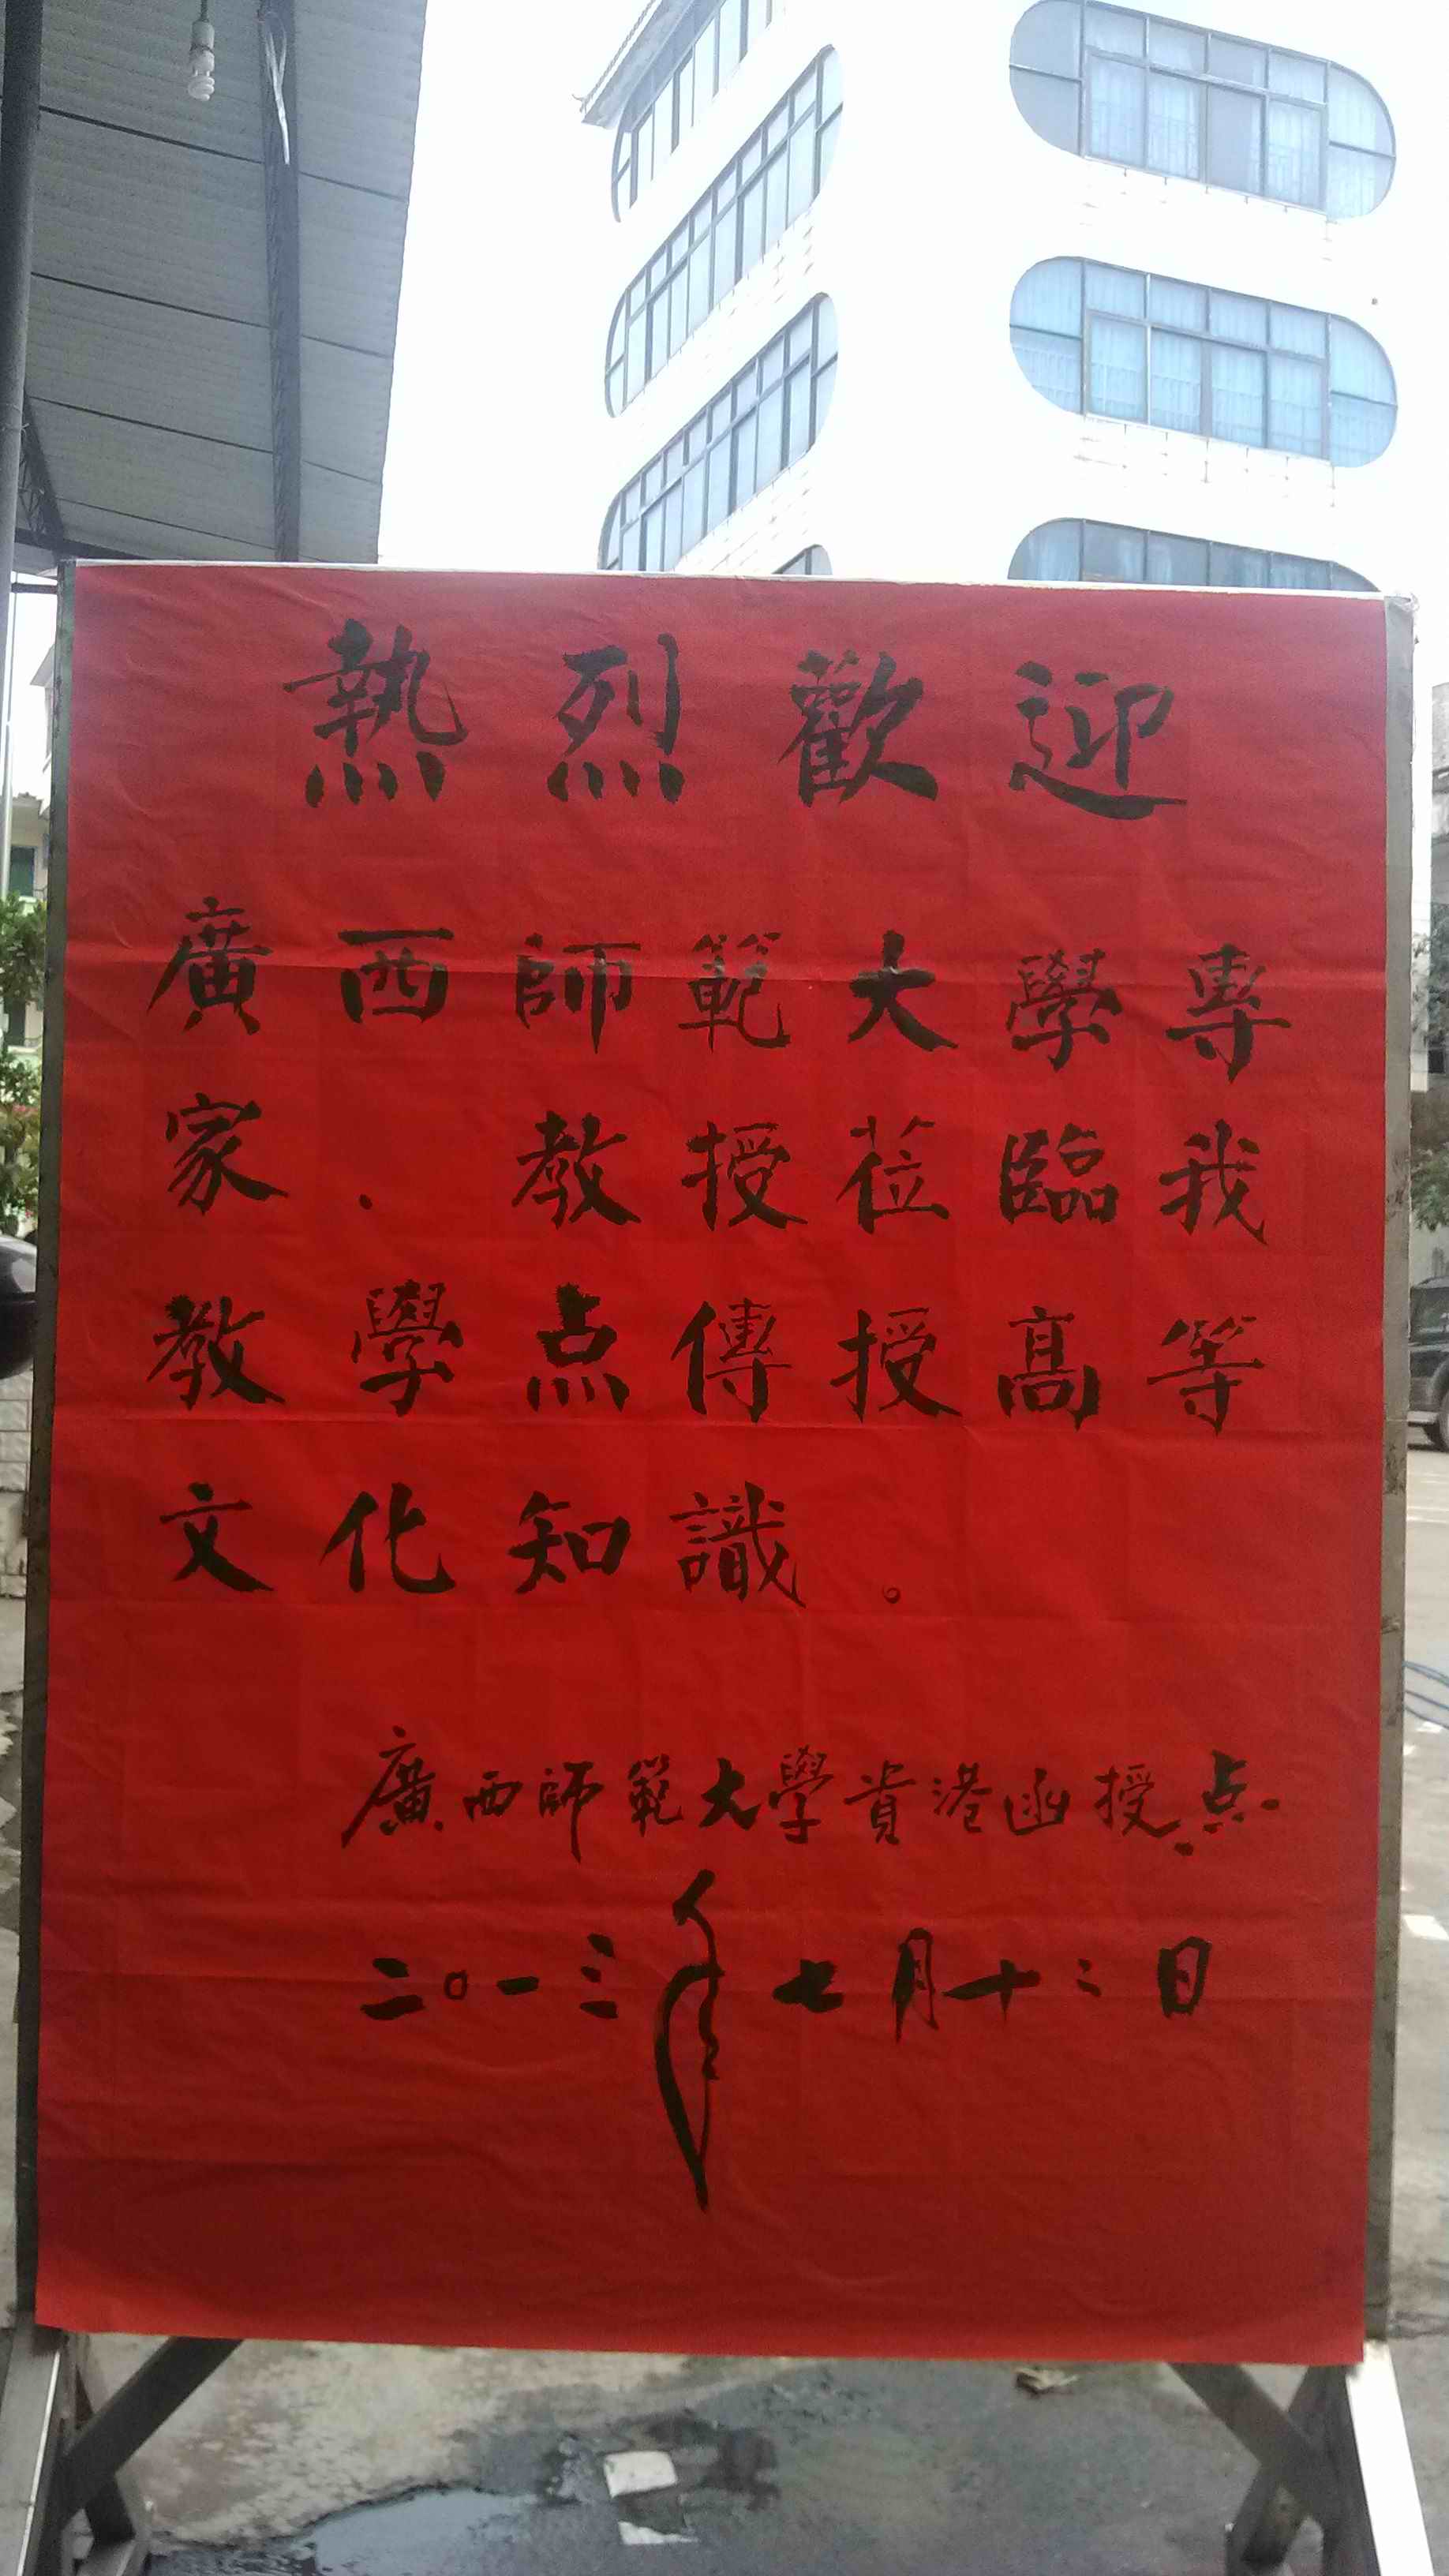 熱烈歡迎
廣西師範大學專
家、教授莅臨我
教學点傳授高等
文化知識。
廣西師範大學貴港函授点
二〇一三年七月十二日